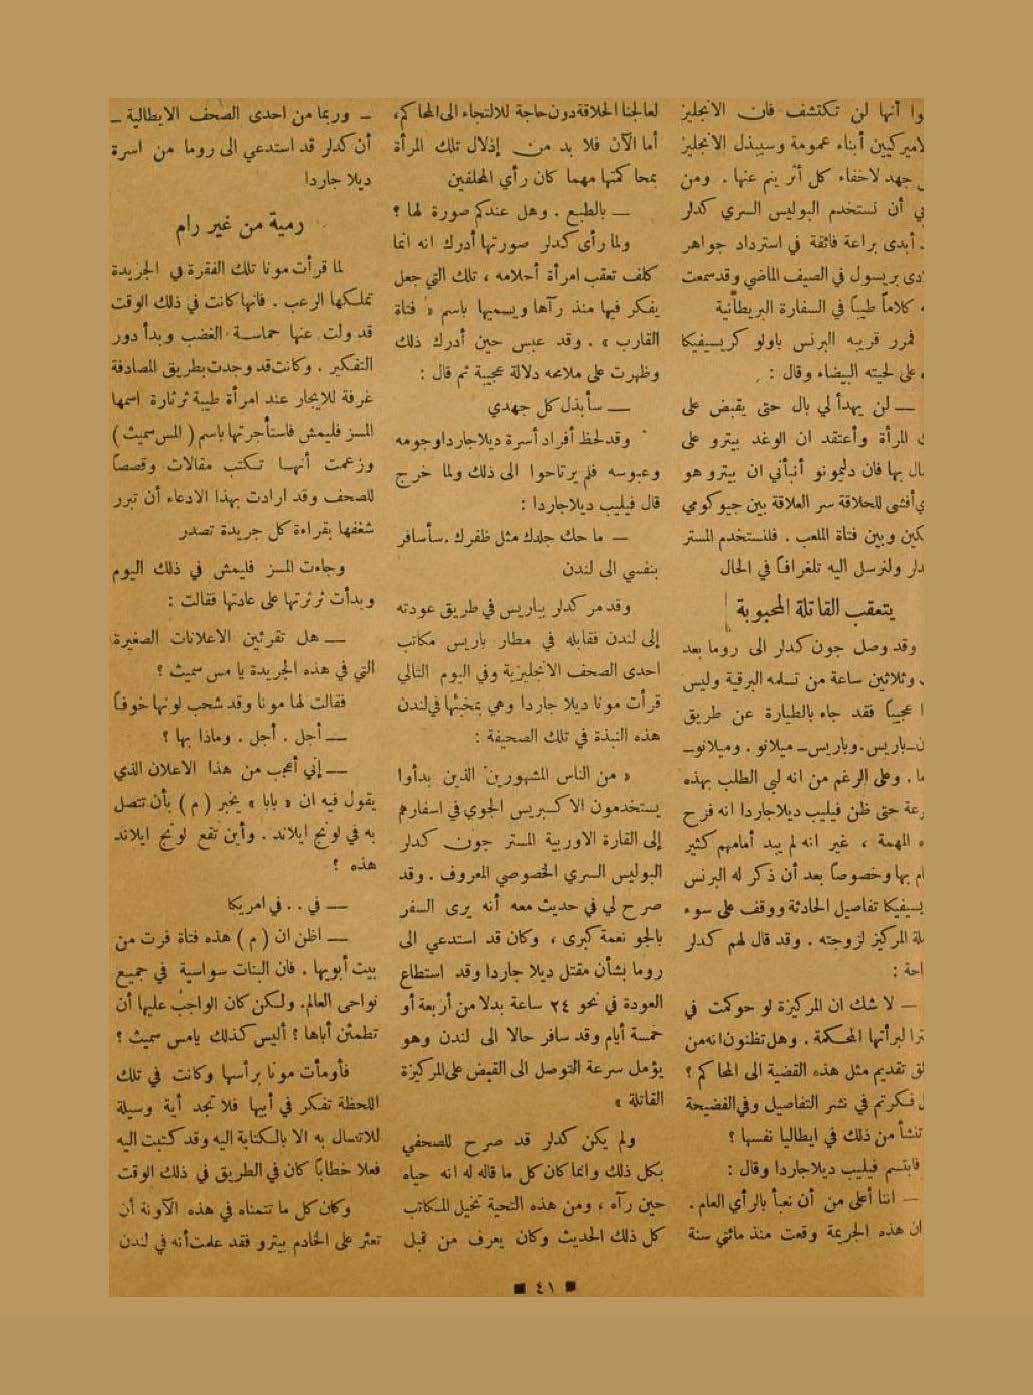 وا أنها لن تكتشف فان الانجليز
لاميركيين أبناء عمومة وسيبذل الانجليز
جهد لاخفاء كل أثر ينم عنها . ومن
ي أن نستخدم البوليس السري كدلر
. أبدى براعة فائقة في استرداد جواهر
ادى بريسول في الصيف الماضي وقد سمعت
كلاماً طيباً في السفارة البريطانية
فمرر قريبه البرنس باولو كريسيفيكا
ه على لحيته البيضاء وقال :
— لن يهدأ لي بال حتى يقبض على
ك المرأة وأعتقد ان الوغد بيترو على
ال بها فان دليمونو أنبأني ان بيترو هو
ي أفشى للحلاقة سر العلاقة بين جيوكومي
كين وبين فتاة الملعب . فلنستخدم المستر
دلر ولنرسل اليه تلغرافاً في الحال
يتعقب القاتلة المحبوبة
وقد وصل جون كدلر الى روما بعد
وثلاثين ساعة من تسلمه البرقية وليس
ا عجيباً فقد جاء بالطيارة عن طريق
ن — باريس . وباريس — ميلانو . وميلانو —
ا . وعلى الرغم من انه لبى الطلب بهذه
رعة حتى ظن فيليب ديلاجاردا انه فرح
ه المهمة ، غير انه لم يبد أمامهم كثير
ام بها وخصوصاً بعد أن ذكر له البرنس
يسيفيكا تفاصيل الحادثة ووقف على سوء
لة المركيز لزوجته . وقد قال لهم كدلر
احة :
— لا شك ان المركيزة لو حوكمت في
ترا لبرأتها المحكمة . وهل تظنون انه من
لق تقديم مثل هذه القضية الى المحاكم ؟
ل فكرتم في نشر التفاصيل وفي الفضيحة
تنشأ من ذلك في ايطاليا نفسها ؟
فابتسم فيليب ديلاجاردا وقال :
— اننا أعلى من أن نعبأ بالرأي العام .
ان هذه الجريمة وقعت منذ مائتي سنة
لعالجنا الحلاقة دون حاجة للالتجاء الى المحاكم ،
أما الآن فلا بد من إذلال تلك المرأة
بمحاكمتها مهما كان رأي المحلفين
— بالطبع . وهل عندكم صورة لها ؟
ولما رأى كدلر صورتها أدرك انه انما
كلف تعقب امرأة أحلامه ، تلك التي جعل
يفكر فيها منذ رآها ويسميها باسم « فتاة
القارب » . وقد عبس حين أدرك ذلك
وظهرت على ملامحه دلالة عجيبة ثم قال :
— سأبذل كل جهدي
وقد لحظ أفراد أسرة ديلاجاردا وجومه
وعبوسه فلم يرتاحوا الى ذلك ولما خرج
قال فيليب ديلاجاردا :
— ما حك جلدك مثل ظفرك . سأسافر
بنفسي الى لندن
وقد مر كدلر بباريس في طريق عودته
إلى لندن فقابله في مطار باريس مكاتب
احدى الصحف الانجليزية وفي اليوم التالي
قرأت مونا ديلا جاردا وهي بمخبئها في لندن
هذه النبذة في تلك الصحيفة :
« من الناس المشهورين الذين بدأوا
يستخدمون الاكسبريس الجوي في اسفارهم
إلى القارة الاوربية المستر جون كدلر
البوليس السري الخصوصي المعروف . وقد
صرح لي في حديث معه أنه يرى السفر
بالجو نعمة كبرى ، وكان قد استدعي الى
روما بشأن مقتل ديلا جاردا وقد استطاع
العودة في نحو ٢٤ ساعة بدلا من أربعة أو
خمسة أيام وقد سافر حالا الى لندن وهو
يؤمل سرعة التوصل الى القبض على المركيزة
القاتلة »
ولم يكن كدلر قد صرح للصحفي
بكل ذلك وانما كان كل ما قاله له انه حياه
حين رآه ، ومن هذه التحية تخيل المكاتب
كل ذلك الحديث وكان يعرف من قبل
— وربما من احدى الصحف الايطالية —
أن كدلر قد استدعي الى روما من اسرة
ديلا جاردا
رمية من غير رام
لما قرأت مونا تلك الفقرة في الجريدة
تملكها الرعب . فانها كانت في ذلك الوقت
قد ولت عنها حماسة الغضب وبدأ دور
التفكير . وكانت قد وجدت بطريق المصادفة
غرفة للايجار عند امرأة طيبة ثرثارة اسمها
المسز فليمش فاستأجرتها باسم ( المس سميث )
وزعمت أنها تكتب مقالات وقصصاً
للصحف وقد ارادت بهذا الادعاء أن تبرر
شغفها بقراءة كل جريدة تصدر
وجاءت المسز فليمش في ذلك اليوم
وبدأت ثرثرتها على عادتها فقالت :
— هل تقرئين الاعلانات الصغيرة
التي في هذه الجريدة يا مس سميث ؟
فقالت لها مونا وقد شحب لونها خوفاً
— أجل . أجل . وماذا بها ؟
— إني أعجب من هذا الاعلان الذي
يقول فيه ان « بابا » يخبر ( م ) بأن تتصل
به في لونج ايلاند . وأين تقع لونج ايلاند
هذه ؟
— في . . في امريكا
— اظن ان ( م ) هذه فتاة فرت من
بيت أبويها . فان البنات سواسية في جميع
نواحى العالم . ولكن كان الواجب عليها أن
تطمئن أباها ؟ أليس كذلك يا مس سميث ؟
فأومأت مونا برأسها وكانت في تلك
اللحظة تفكر في أبيها فلا تجد أية وسيلة
للاتسال به الا بالكتابة اليه وقد كتبت اليه
فعلا خطاباً كان في الطريق في ذلك الوقت
وكان كل ما تتمناه في هذه الآونة أن
تعثر على الخادم بيترو فقد علمت أنه في لندن
■ ٤١ ■